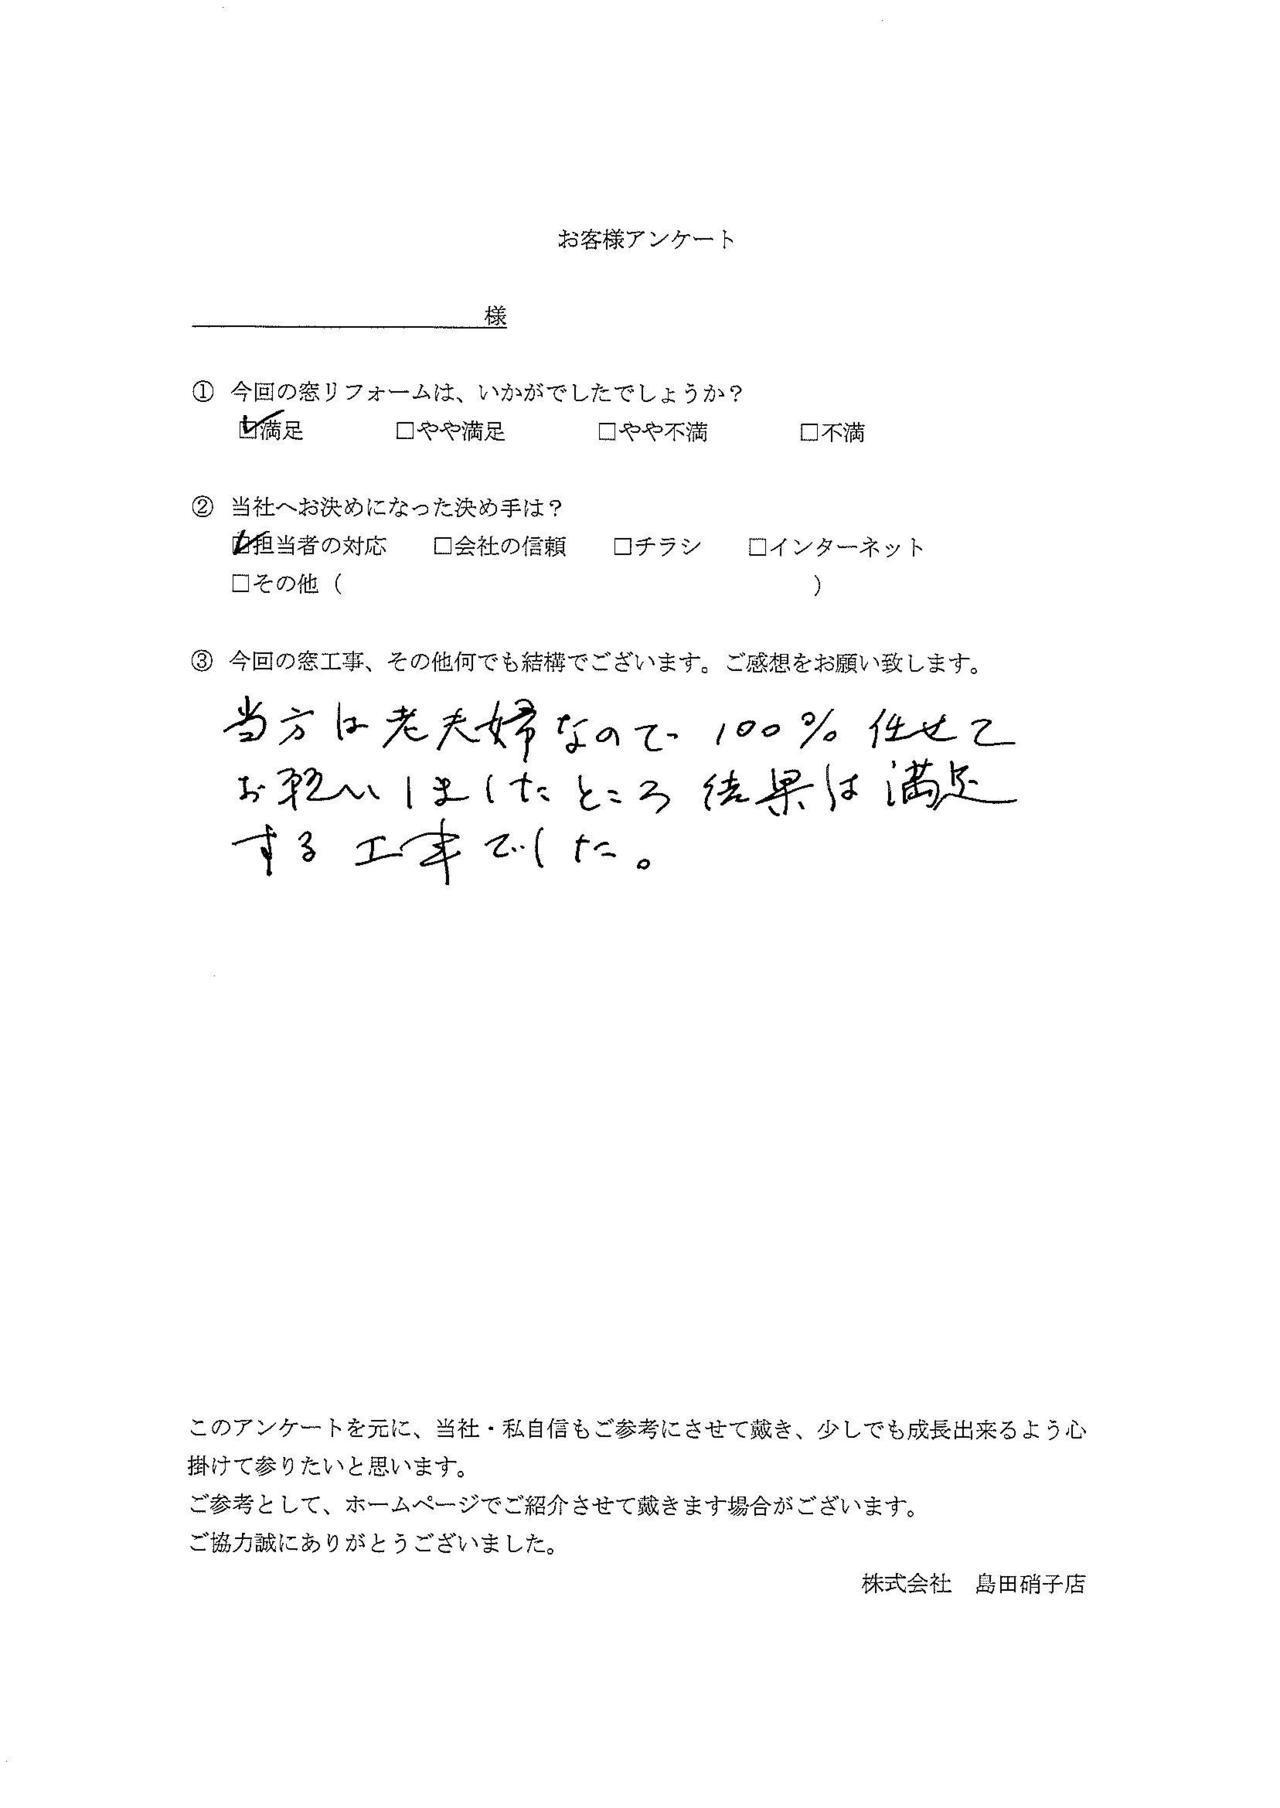 お客様アンケート
様
① 今回の窓リフォームは、いかがでしたでしょうか？
☑満足 □やや満足 □やや不満 □不満
② 当社へお決めになった決め手は？
☑担当者の対応 □会社の信頼 □チラシ □インターネット
□その他（ ）
③ 今回の窓工事、その他何でも結構でございます。ご感想をお願い致します。
当方は老夫婦なので 100% 任せて
お願いしましたところ 結果は満足
する工事でした。
このアンケートを元に、当社・私自信もご参考にさせて戴き、少しでも成長出来るよう心
掛けて参りたいと思います。
ご参考として、ホームページでご紹介させて戴きます場合がございます。
ご協力誠にありがとうございました。
株式会社　島田硝子店